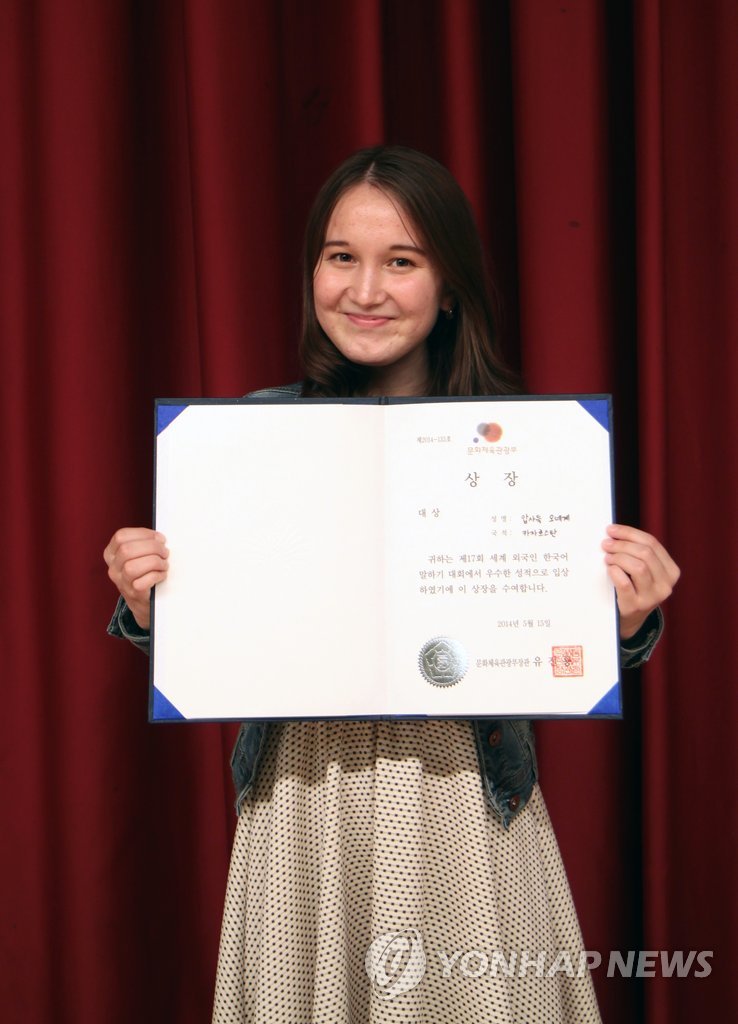 제2014-133호
문화체육관광부
상 장
대 상
성 명 : 압사득 오데게
국 적 : 카자흐스탄
귀하는 제17회 세계 외국인 한국어
말하기 대회에서 우수한 성적으로 입상
하였기에 이 상장을 수여합니다.
2014년 5월 15일
문화체육관광부장관 유 진 룡
YONHAP NEWS